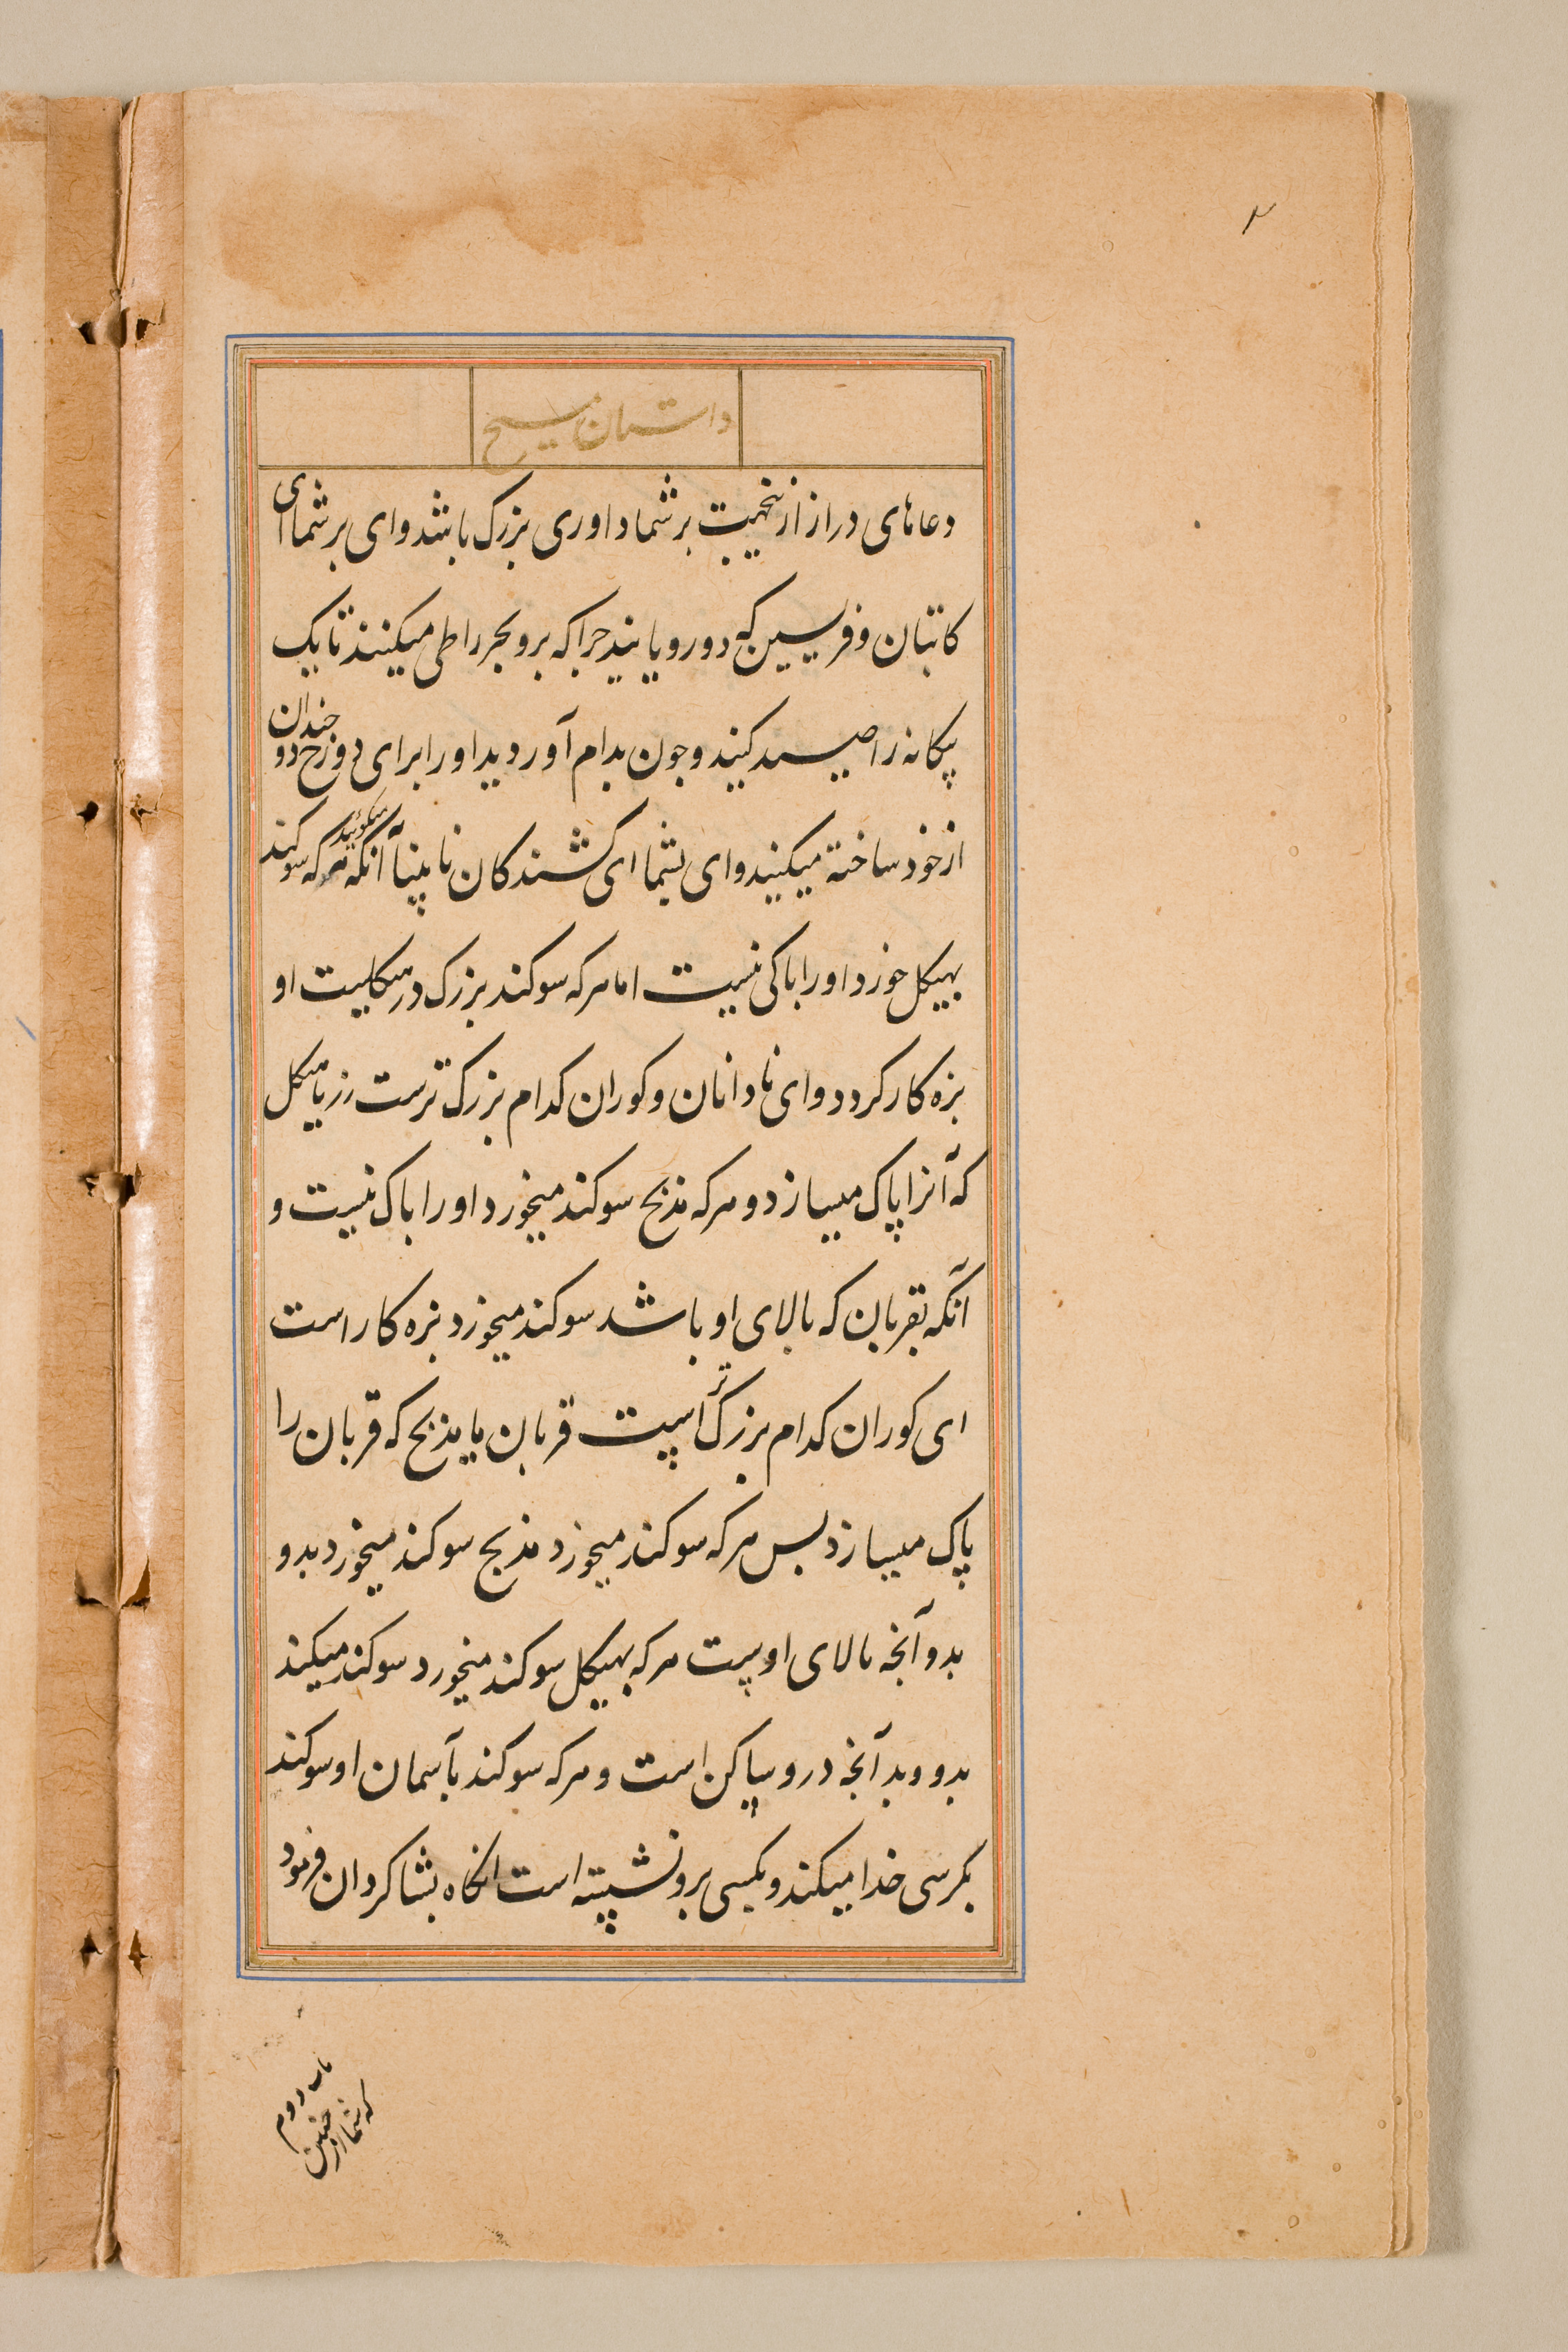 داستان مسیح
دعاهای دراز ازینجهت بر شما داوری بزرک باشد وای بر شما ای
کاتبان و فریسین که دورویانید جراکه بر و بحر را طی میکنند تا یک
بیکانه را صید کنید و جون بدام آوردید او را برای دوزخ دو جندان
از خود ساخته میکنید وای بشما ای کشندکان نابینا آنکه میکوئید هرکه سوکند
بهیکل خورد او را باکی نیست اما هرکه سوکند بزرک در هیکلیست او
بزه کار کردد وای نادانان و کوران کدام بزرک ترست زر یا هیکل
که آنرا پاک میسازد و هرکه مذبح سوکند میخورد او را باک نیست و
آنکه بقربان که بالای او باشد سوکند میخورد بزه کار است
ای کوران کدام بزرک تر است قربان یا مذبح که قربان را
پاک میسازد بس هرکه سوکند میخورد مذبح سوکند میخورد بدو
بدو آنجه بالای اوست هرکه بهیکل سوکند میخورد سوکند میکند
بدو و بد آنجه درو ساکن است و هرکه سوکند بآسمان او سوکند
بکرسی خدا میکند و بکسی برو نشسته است انکاه بشاکردان فرمود
باب دوم
که شما از جنین